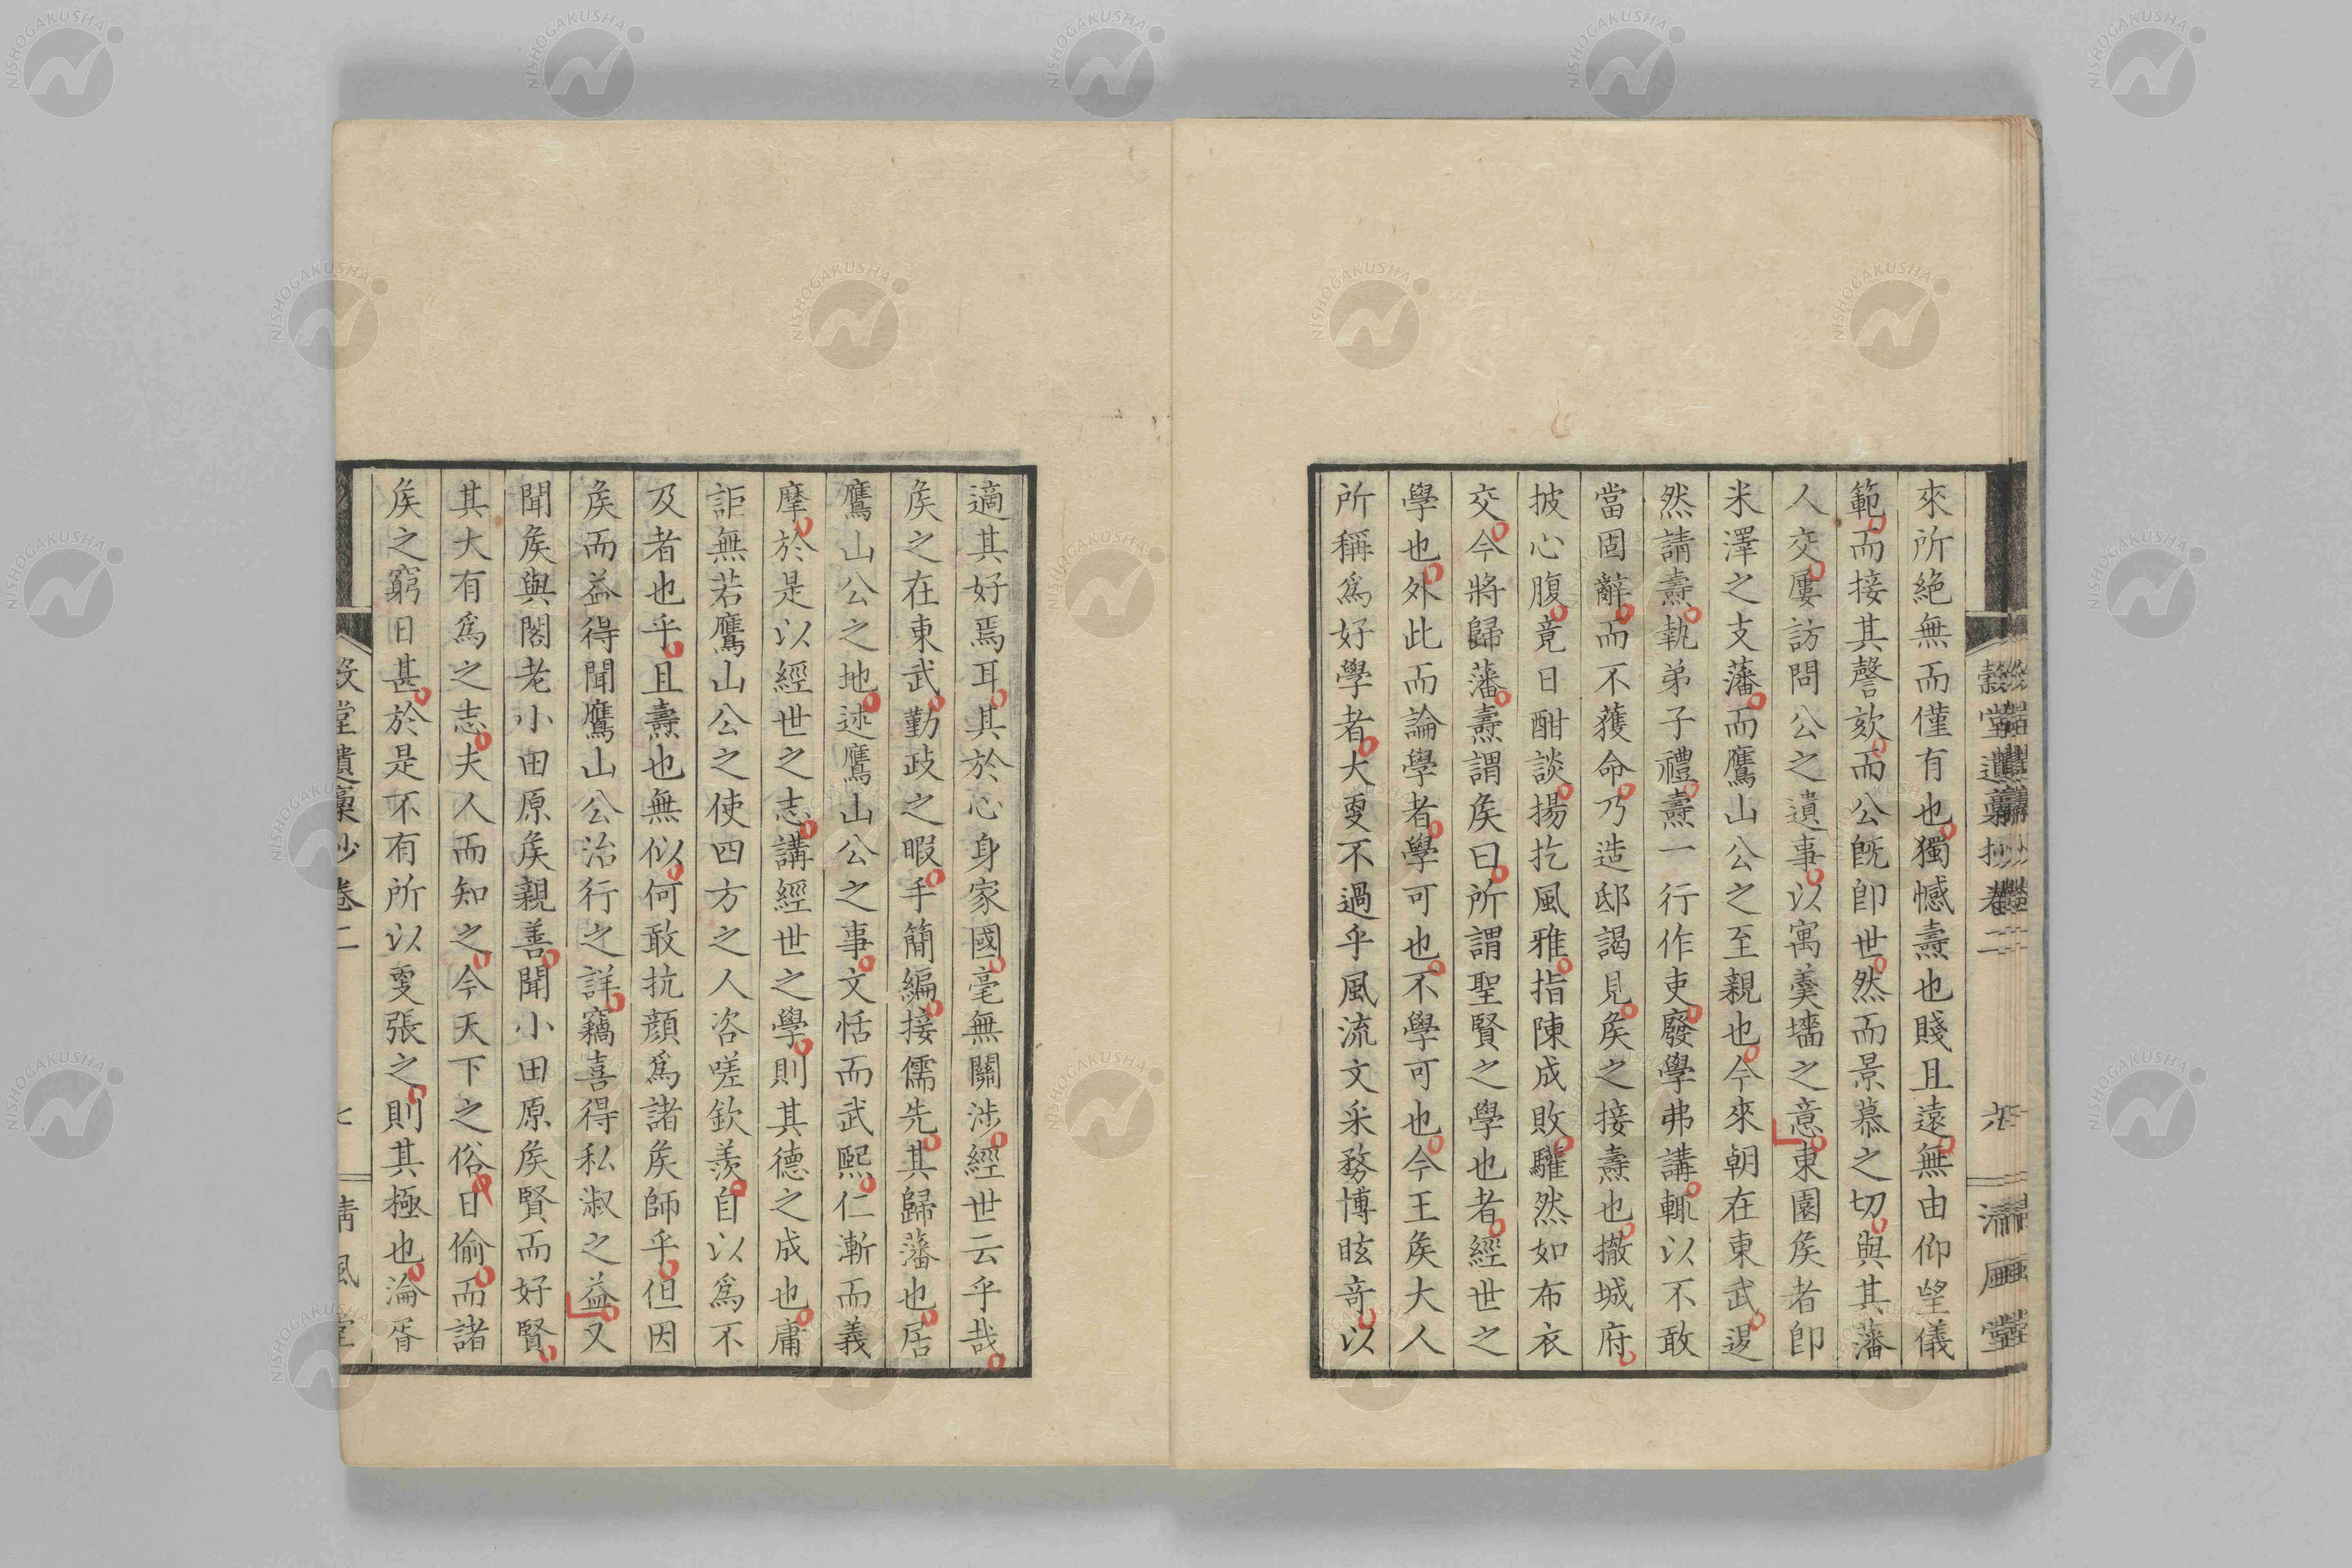 來所絶無而僅有也獨憾燾也賤且遠無由仰望儀
範而接其謦欬而公既卽世然而景慕之切與其藩
人交屢訪問公之遺事以寓羹墻之意東園矦者卽
米澤之支藩而鷹山公之至親也今來朝在東武遝
然請燾執弟子禮燾一行作吏廢學弗講輒以不敢
當固辭而不獲命乃造邸謁見矦之接燾也撤城府
披心腹竟日酣談揚扢風雅指陳成敗驩然如布衣
交今將歸藩燾謂矦曰所謂聖賢之學也者經世之
學也外此而論學者學可也不學可也今王矦大人
所稱爲好學者大要不過乎風流文采務博眩奇以
適其好焉耳其於心身家國毫無關涉經世云乎哉
矦之在東武勤政之暇手簡編接儒先其歸藩也居
鷹山公之地述鷹山公之事文恬而武熙仁漸而義
摩於是以經世之志講經世之學則其德之成也庸
詎無若鷹山公之使四方之人咨嗟欽羨自以爲不
及者也乎且燾也無似何敢抗顔爲諸矦師乎但因
矦而益得聞鷹山公治行之詳竊喜得私淑之益又
聞矦與閣老小田原矦親善聞小田原矦賢而好賢
其大有爲之志夫人而知之今天下之俗日偷而諸
矦之窮日甚於是不有所以更張之則其極也淪胥
堂遺稾抄卷二
七
淸風堂